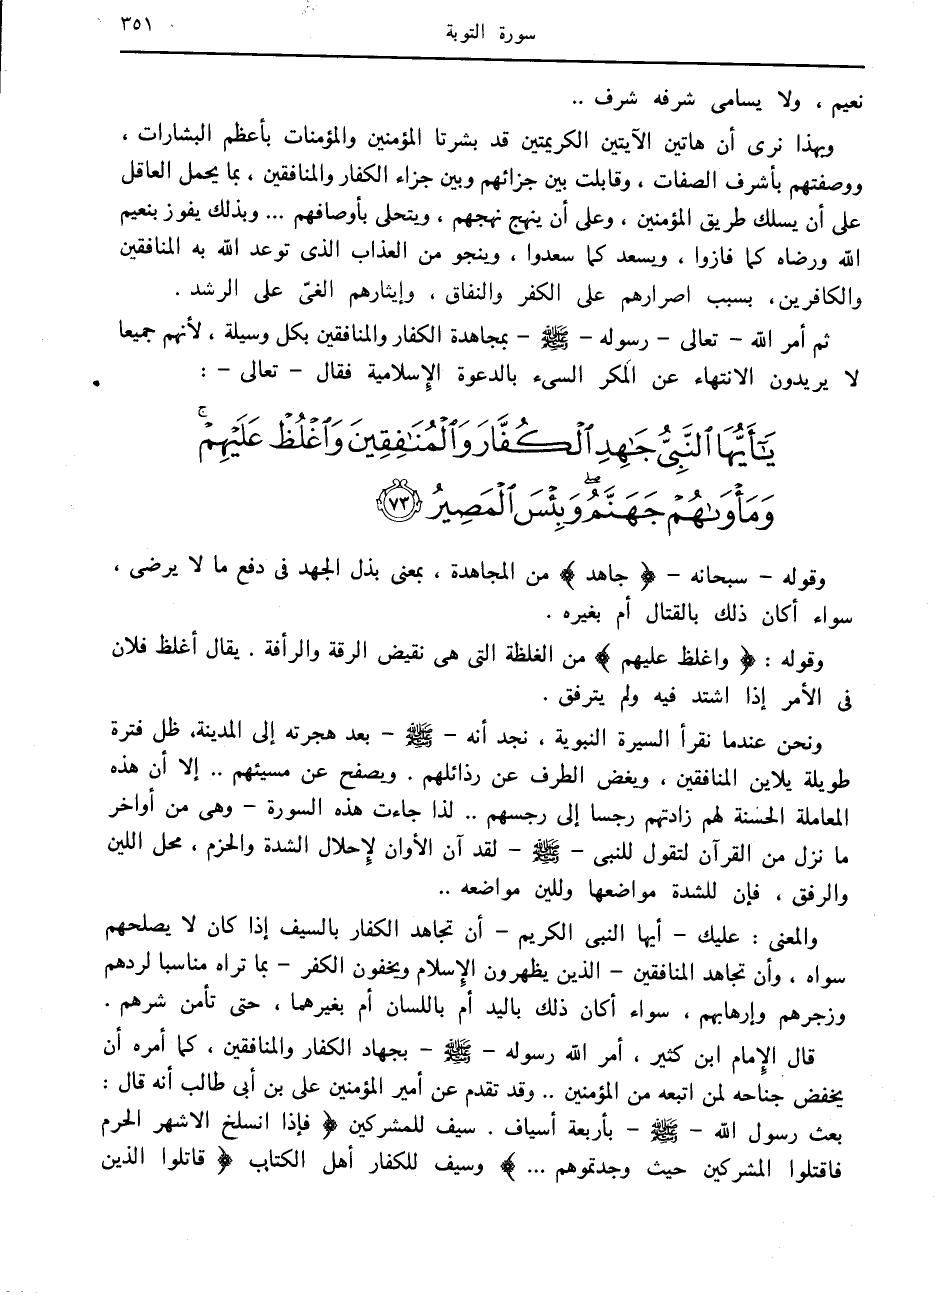 سورة التوبة ٣٥١
نعيم ، ولا يسامى شرفه شرف ..
وبهذا نرى أن هاتين الآيتين الكريمتين قد بشرتا المؤمنين والمؤمنات بأعظم البشارات ،
ووصفتهم بأشرف الصفات ، وقابلت بين جزائهم وبين جزاء الكفار والمنافقين ، بما يحمل العاقل
على أن يسلك طريق المؤمنين ، وعلى أن ينهج نهجهم ، ويتحلى بأوصافهم ... وبذلك يفوز بنعيم
الله ورضاه كما فازوا ، ويسعد كما سعدوا ، وينجو من العذاب الذى توعد الله به المنافقين
والكافرين، بسبب اصرارهم على الكفر والنفاق ، وإيثارهم الغىّ على الرشد .
ثم أمر الله - تعالى - رسوله - ﷺ - بمجاهدة الكفار والمنافقين بكل وسيلة ، لأنهم جميعا
لا يريدون الانتهاء عن المكر السىء بالدعوة الإسلامية فقال - تعالى - :
يَٰٓأَيُّهَا ٱلنَّبِىُّ جَٰهِدِ ٱلْكُفَّارَ وَٱلْمُنَٰفِقِينَ وَٱغْلُظْ عَلَيْهِمْ ۚ
وَمَأْوَىٰهُمْ جَهَنَّمُ ۖ وَبِئْسَ ٱلْمَصِيرُ ﴿٧٣﴾
وقوله - سبحانه - ﴿ جاهد ﴾ من المجاهدة ، بمعنى بذل الجهد فى دفع ما لا يرضى ،
سواء أكان ذلك بالقتال أم بغيره .
وقوله : ﴿ واغلظ عليهم ﴾ من الغلظة التى هى نقيض الرقة والرأفة . يقال أغلظ فلان
فى الأمر إذا اشتد فيه ولم يترفق .
ونحن عندما نقرأ السيرة النبوية ، نجد أنه - ﷺ - بعد هجرته إلى المدينة، ظل فترة
طويلة يلاين المنافقين ، ويغض الطرف عن رذائلهم . ويصفح عن مسيئهم .. إلا أن هذه
المعاملة الحسنة لهم زادتهم رجسا إلى رجسهم .. لذا جاءت هذه السورة - وهى من أواخر
ما نزل من القرآن لتقول للنبى - ﷺ - لقد آن الأوان لإحلال الشدة والحزم ، محل اللين
والرفق ، فإن للشدة مواضعها وللين مواضعه ..
والمعنى : عليك - أيها النبى الكريم - أن تجاهد الكفار بالسيف إذا كان لا يصلحهم
سواه ، وأن تجاهد المنافقين - الذين يظهرون الإسلام ويخفون الكفر - بما تراه مناسبا لردهم
وزجرهم وإرهابهم ، سواء أكان ذلك باليد أم باللسان أم بغيرهما ، حتى تأمن شرهم .
قال الإمام ابن كثير ، أمر الله رسوله - ﷺ - بجهاد الكفار والمنافقين ، كما أمره أن
يخفض جناحه لمن اتبعه من المؤمنين .. وقد تقدم عن أمير المؤمنين على بن أبى طالب أنه قال :
بعث رسول الله - ﷺ - بأربعة أسياف . سيف للمشركين ﴿ فإذا انسلخ الاشهر الحرم
فاقتلوا المشركين حيث وجدتموهم ... ﴾ وسيف للكفار أهل الكتاب ﴿ قاتلوا الذين